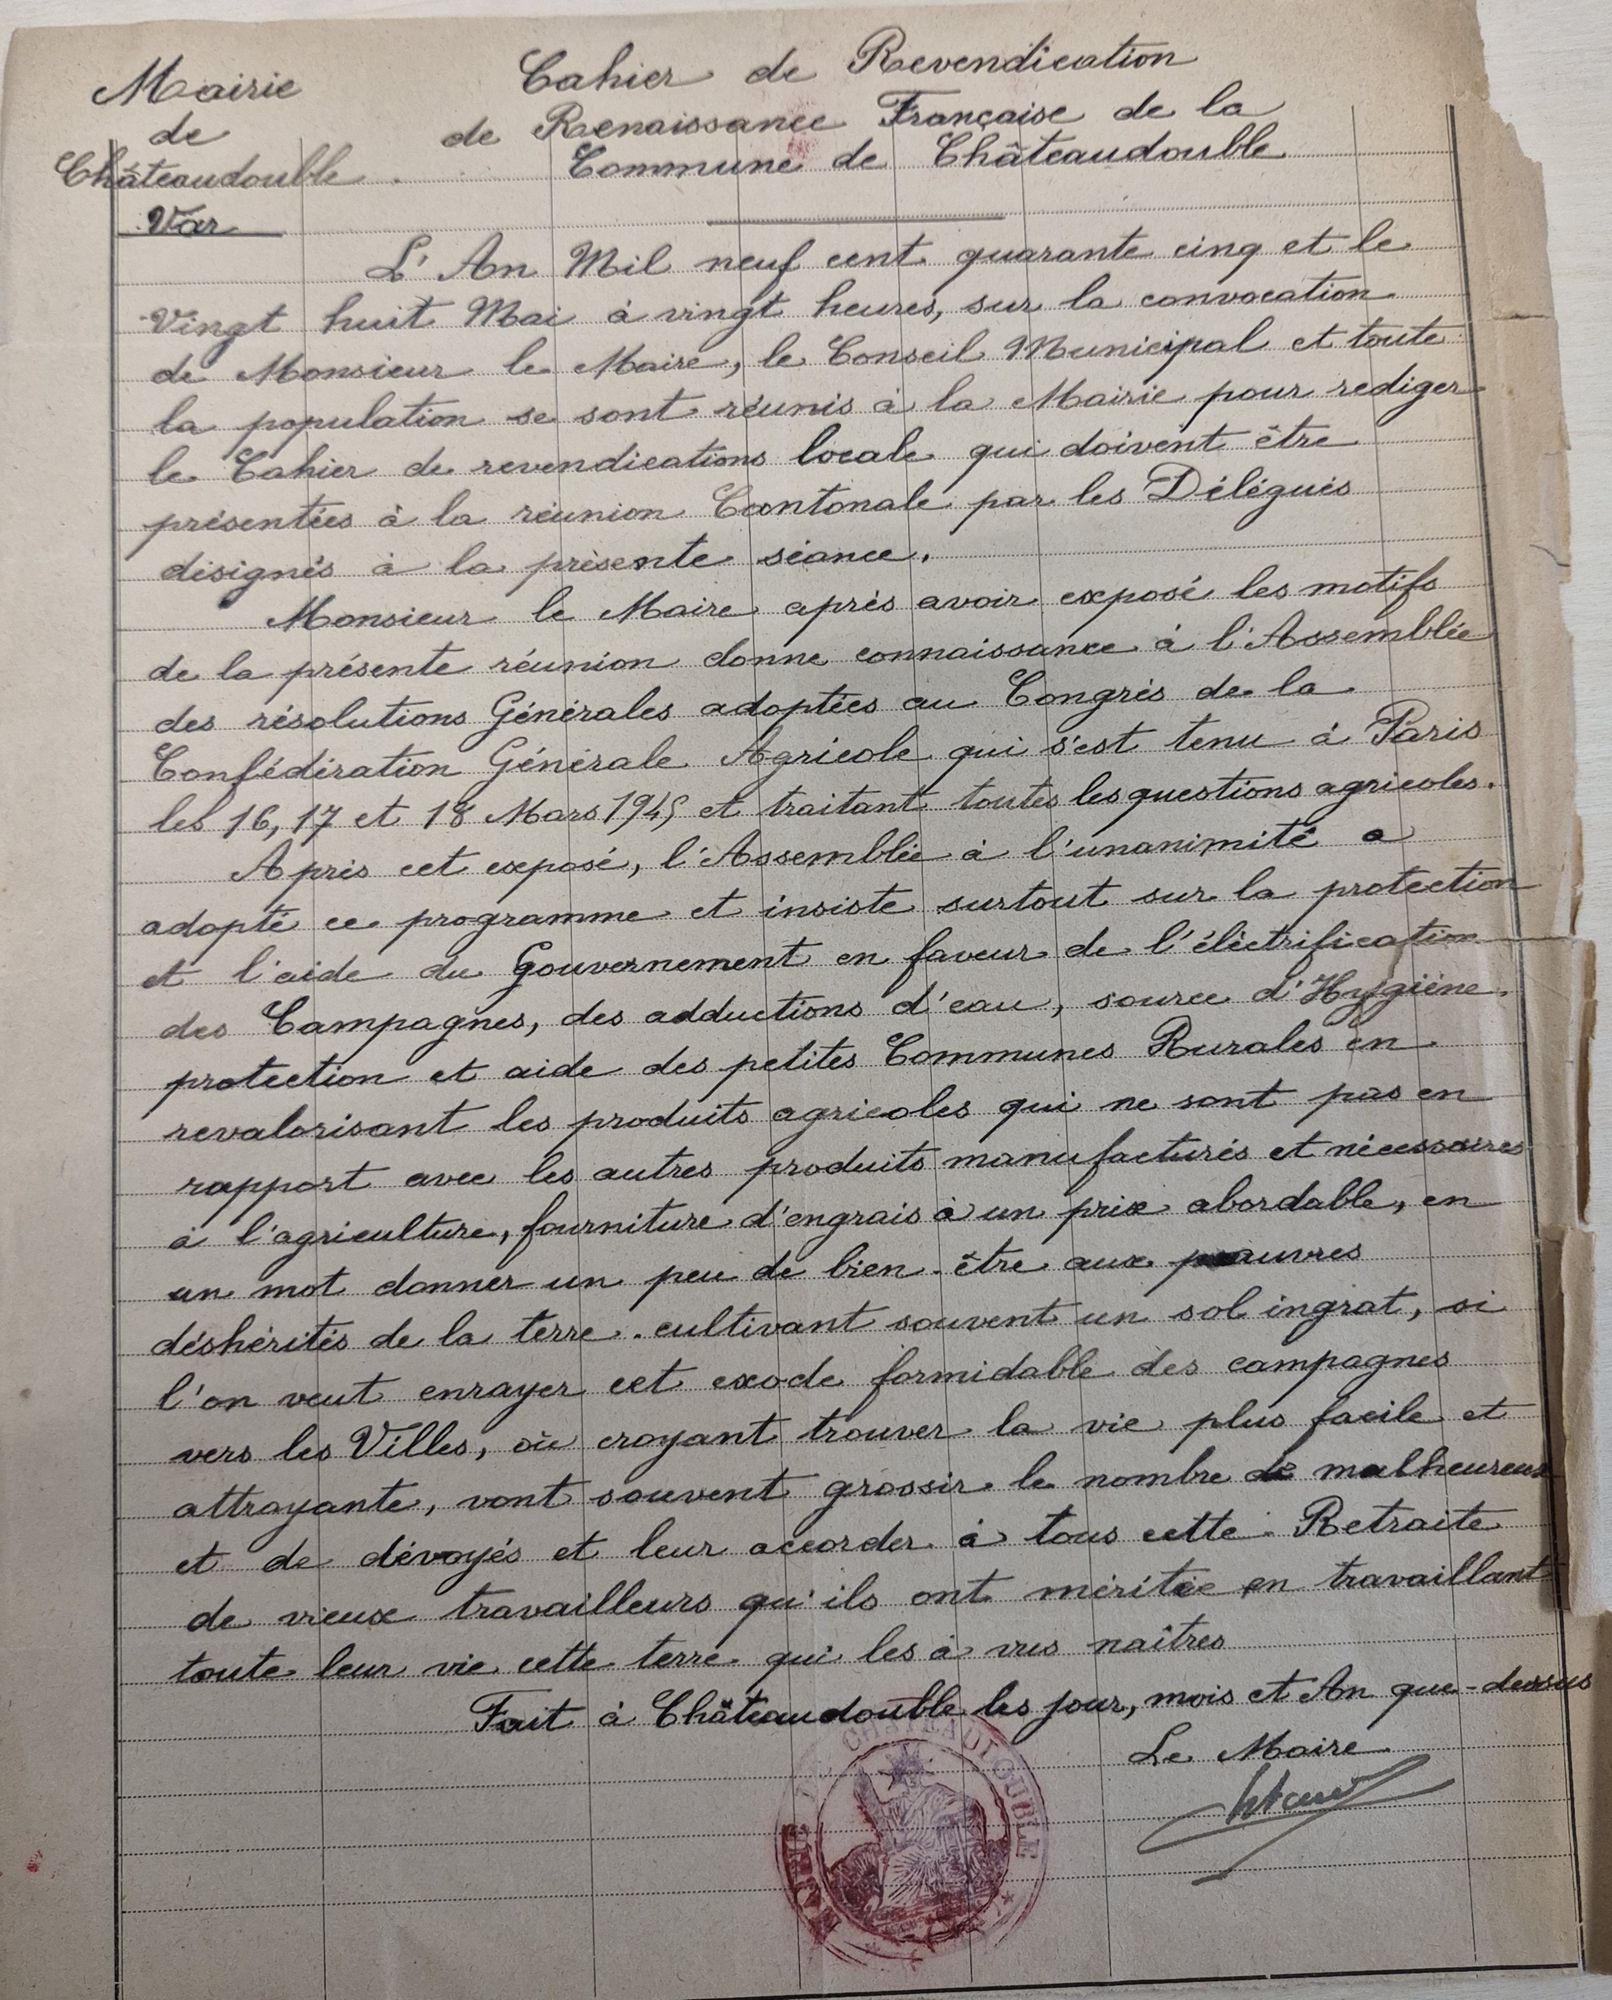 Mairie
de
Châteaudouble
Var
Cahier de Revendication
de Renaissance Française de la
Commune de Châteaudouble
L'An Mil neuf cent quarante cinq et le
Vingt huit Mai à vingt heures, sur la convocation
de Monsieur le Maire, le Conseil Municipal et toute
la population se sont réunis à la Mairie pour rediger
le Cahier de revendications locale qui doivent être
présentées à la réunion Cantonale par les Délégués
désignés à la présente séance.
Monsieur le Maire après avoir exposé les motifs
de la présente réunion donne connaissance à l'Assemblée
des résolutions Générales adoptées au Congrès de la
Confédération Générale Agricole qui s'est tenu à Paris
les 16, 17 et 18 Mars 1945 et traitant toutes les questions agricoles.
Après cet exposé, l'Assemblée à l'unanimité a
adopté ce programme et insiste surtout sur la protection
et l'aide du Gouvernement en faveur de l'éléctrification
des Campagnes, des adductions d'eau, source d'Hygiène,
protection et aide des petites Communes Rurales en
revalorisant les produits agricoles qui ne sont pas en
rapport avec les autres produits manufacturés et nécessaires
à l'agriculture, fourniture d'engrais à un prix abordable, en
un mot donner un peu de bien-être aux pauvres
déshérités de la terre. cultivant souvent un sol ingrat, si
l'on veut enrayer cet exode formidable des campagnes
vers les Villes, où croyant trouver la vie plus facile et
attrayante, vont souvent grossir le nombre de malheureux
et de dévoyés et leur accorder à tous cette Retraite
de vieux travailleurs qu'ils ont méritée en travaillant
toute leur vie cette terre qui les à vus naîtres
Fait à Châteaudouble les jour, mois et An que-dessus
Le Maire
MAIRIE DE CHATEAUDOUBLE